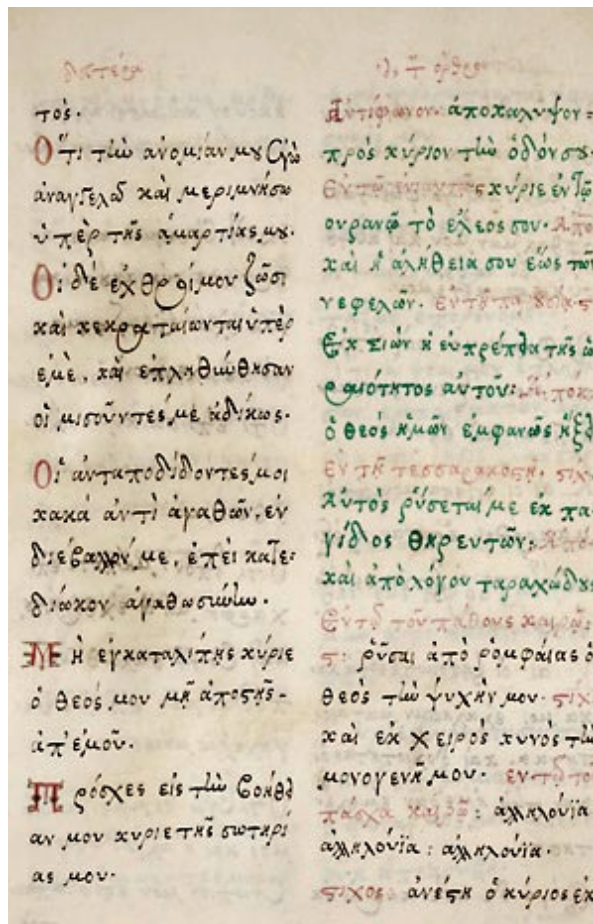 τος.
Ὅτι τὴν ἀνομίαν μου ἐγὼ
ἀναγγελῶ καὶ μεριμνήσω
ὑπὲρ τῆς ἁμαρτίας μου.
Οἱ δὲ ἐχθροί μου ζῶσι
καὶ κεκραταίωνται ὑπὲρ
ἐμὲ, καὶ ἐπληθύνθησαν
οἱ μισοῦντές με ἀδίκως.
Οἱ ἀνταποδιδόντες μοι
κακὰ ἀντὶ ἀγαθῶν, ἐν
διέβαλλόν με, ἐπεὶ κατε
δίωκον ἀγαθωσύνην.
Μὴ ἐγκαταλίπῃς κύριε
ὁ θεός μου μὴ ἀποστῇς
ἀπ' ἐμοῦ.
Πρόσχες εἰς τὴν βοήθει
αν μου κύριε τῆς σωτηρί
ας μου.
Ἀντίφωνον. ἀποκάλυψον
πρὸς κύριον τὴν ὁδόν σου.
κύριε ἐν τῷ
οὐρανῷ τὸ ἔλεος σου.
καὶ ἡ ἀλήθεια σου ἕως τῶν
νεφελῶν.
Ἐκ σιὼν ἡ εὐπρέπεια τῆς ὡ
ραιότητος αὐτοῦ:
ὁ θεὸς ἡμῶν ἐμφανῶς ἥξει
ἐν τῇ τεσσαρακοστῇ. στίχ
Αὐτὸς ῥύσεταί με ἐκ πα
γίδος θηρευτῶν:
καὶ ἀπὸ λόγου ταραχώδους
Ἐν τῷ τοῦ πάθους καιρῷ:
ῥῦσαι ἀπὸ ῥομφαίας ὁ
θεὸς τὴν ψυχήν μου. στίχ
καὶ ἐκ χειρὸς κυνὸς τὴν
μονογενῆ μου. ἐν τῷ τοῦ
πάσχα καιρῷ: ἀλληλούϊα
ἀλληλούϊα: ἀλληλούϊα.
στίχος ἀνέστη ὁ κύριος ἐκ